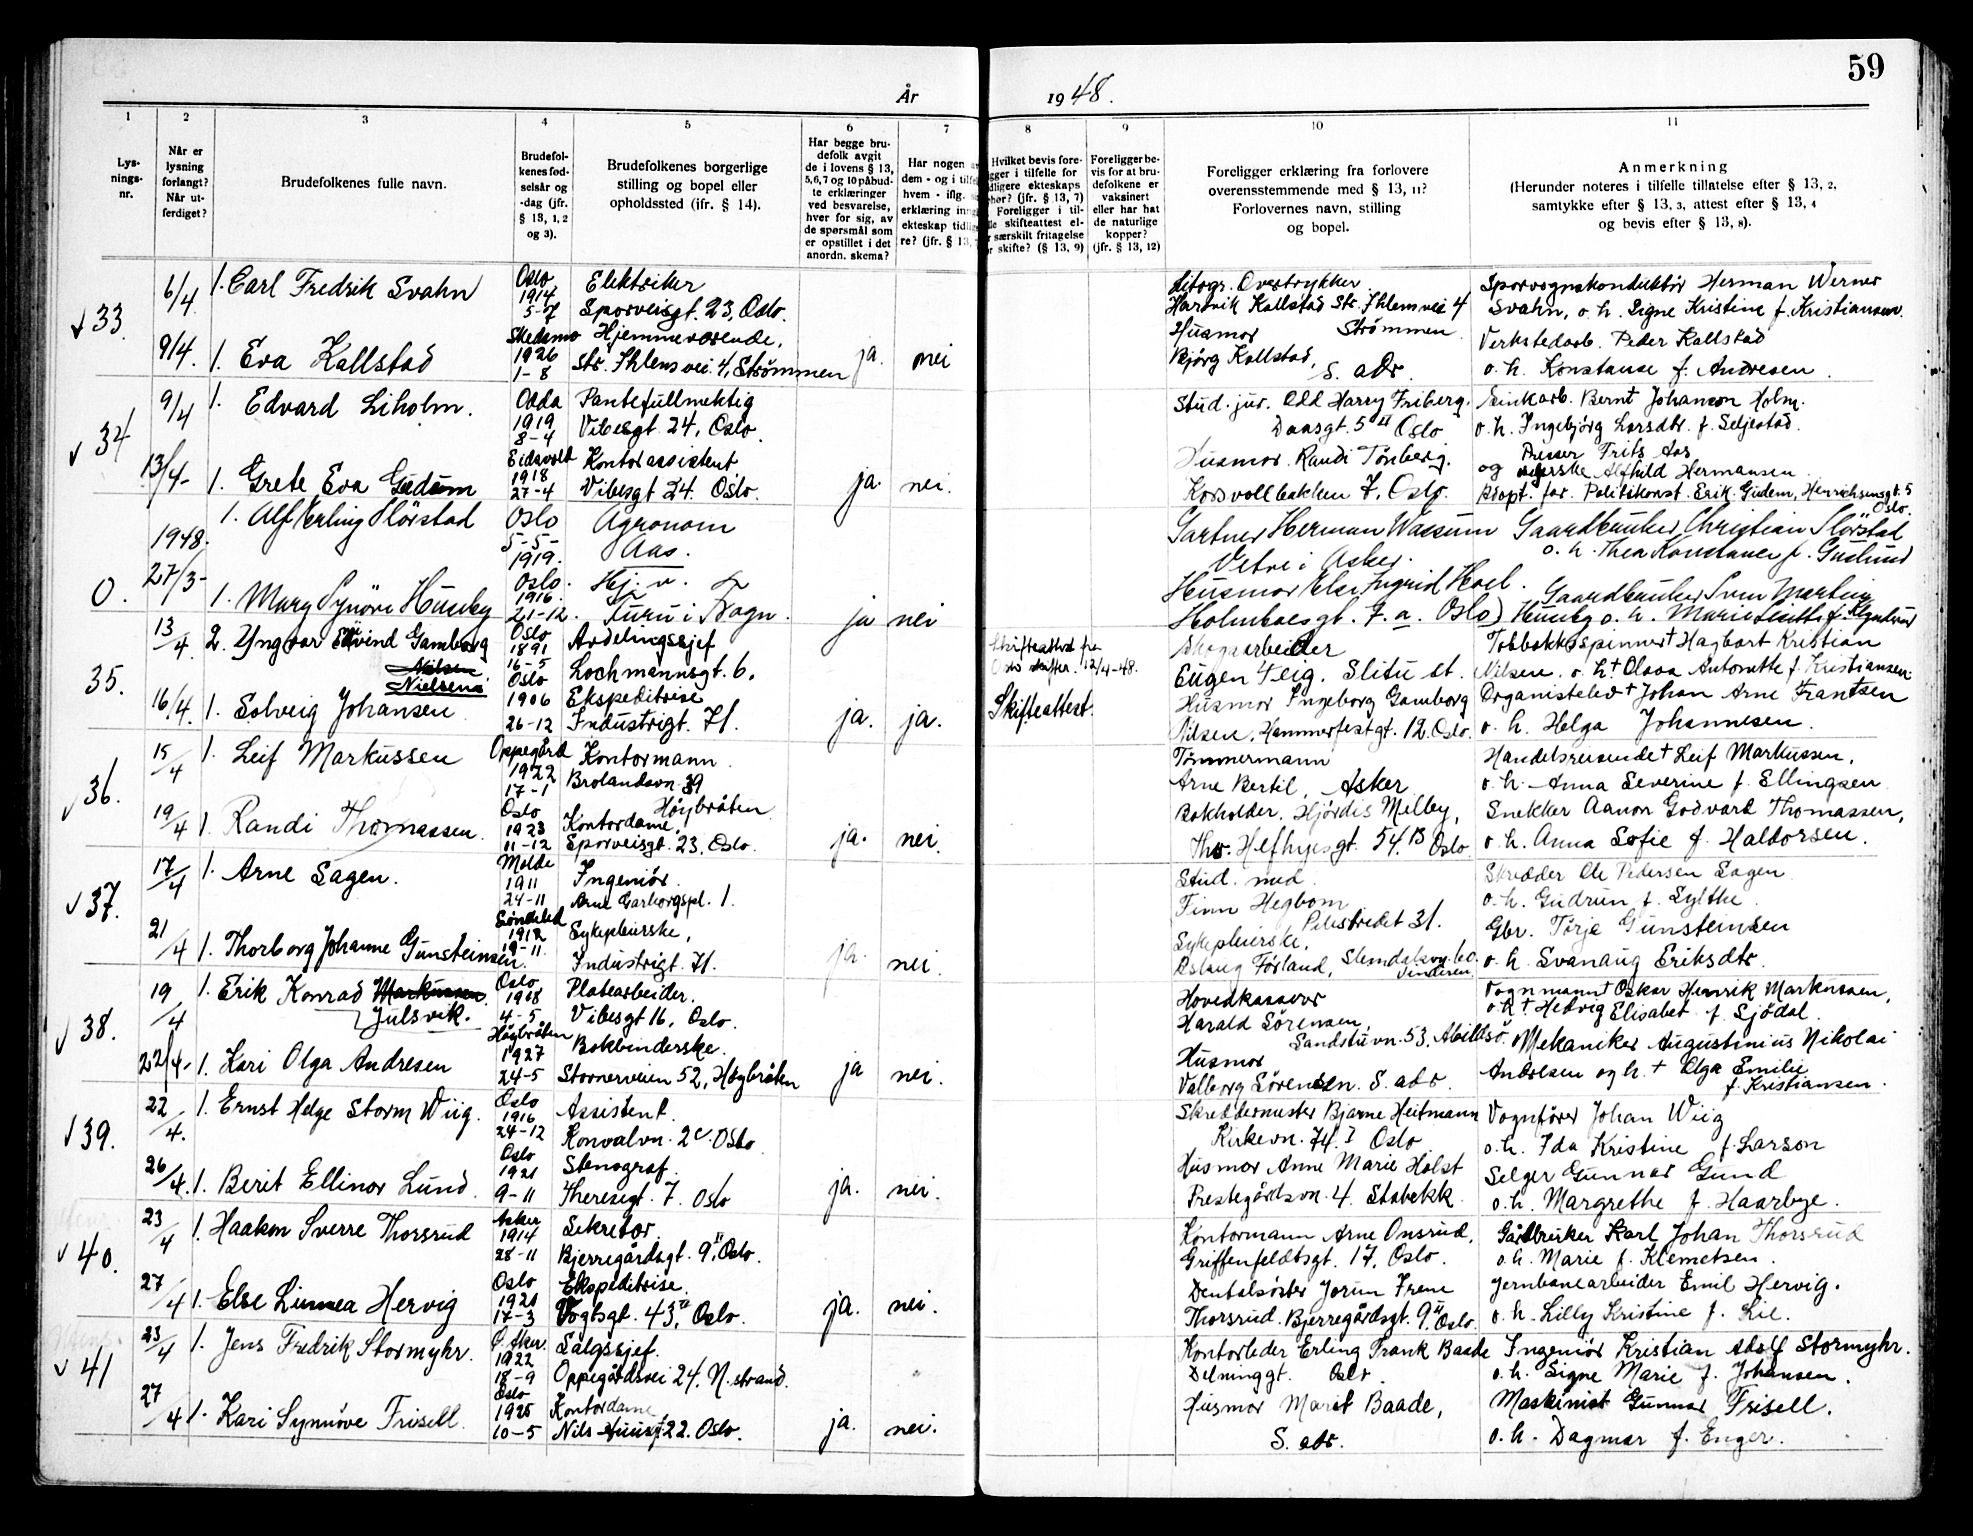 59
År 1948.
1 2 3 4 5 6 7 8 9 10 11
Lys-
nings-
nr.
Når er
lysning
forlangt?
Når ut-
ferdiget?
Brudefolkenes fulle navn.
Brudefol-
kenes fød-
selsår og
-dag (jfr.
§ 13, 1, 2
og 3).
Brudefolkenes borgerlige
stilling og bopel eller
opholdssted (ifr. § 14).
Har begge bru-
defolk avgit
de i lovens § 13,
5,6,7 og 10 påbud-
te erklæringer
ved besvarelse,
hver for sig, av
de spørsmål som
er opstillet i det
anordn. skema?
Har nogen
dem - og i
hvem - iflg.
erklæring
ekteskap
re? (jfr. § 13,
Hvilket bevis fore-
ligger i tilfelle for
tidligere ekteskaps
(jfr. § 13, 7)
Foreligger i til-
skifteattest el-
særskilt fritagelse
skifte? (§ 13, 9)
Foreligger be-
vis for at bru-
defolkene er
vaksinert
eller har hat
de naturlige
kopper?
(jfr. § 13, 12)
Foreligger erklæring fra forlovere
overensstemmende med § 13, 11?
Forlovernes navn, stilling
og bopel.
Anmerkning
(Herunder noteres i tilfelle tillatelse efter § 13, 2,
samtykke efter § 13, 3, attest efter § 13, 4
og bevis efter § 13, 8).
33 6/4 1. Carl Fredrik Svahn Oslo 1914 5-7 Elektriker
Sporveisgt. 23, Oslo.
Litogr. Overtrykker
Hartvik Kallstad Str. Ihlens vei 4
Strømmen
Sporvognskonduktør Herman Werner
Svahn, o. h. Signe Kristine f. Kristiansen.
9/4. 1. Eva Kallstad Skedsmo 1926 1-8 Hjemmeværende,
Str. Ihlens vei. 4, Strømmen ja. nei
Husmor
Bjørg Kallstad, s. adr.
Verkstedarb. Peder Kallstad
o. h. Konstanse f. Andresen.
34 9/4 1. Edvard Liholm. Odda 1919 8-4 Pantefullmektig
Vibesgt. 24, Oslo.
Stud. jur. Odd Harry Friberg.
Daasgt. 5 II Oslo
Sinkarb. Bernt Johanson Holm.
o. h. Ingebjørg Larsdtr. f. Seljestad.
13/4- 1. Grete Eva Gudem Eidsvold 1918 27-4 Kontorassistent
Vibesgt 24. Oslo. ja. nei.
Husmor. Randi Tønberg.
Korsvollbakken 7, Oslo.
Presser Frits Aas
og Alfhild Hermansen.
Adopt. for. Politikonst. Erik Gudem, Henrichsensgt. 5
Oslo.
0. 1948. 27/3- 1. Alf Erling Flörstad Oslo 5-5- 1919. Agronom
Aas.
Gartner Herman Wassum
Vetre i Asker.
Gaardbruker Christian Flörstad
o. h. Thea Konstance f. Guslund
1. Mary Synöve Huseby Oslo. 1916. 21-12. Hj. v.
Furu i Trøgn. ja nei
Husmor Else Ingrid Hoel.
Holmboesgt. 7. a. Oslo)
Gaardbruker Sven Martin
Huseby o. h. Marie
35. 13/4 2. Yngvar Eivind Gamborg
Nilsen
Nielsen
Oslo 1891 16-5 Avdelingssjef
Lochmannsgt. 6.
Skifteattest fra
Oslo skifter. 12/4-48.
Skogsarbeider
Eugen Teig. Slitu st.
Tobbakkspinner† Hagbart Kristian
Nilsen. o. h† Olava Antonette f. Kristiansen
16/4. 1. Solveig Johansen Oslo 1906 26-12 Ekspeditrise
Industrigt. 71. ja. ja. Skifteattest.
Husmor Ingeborg Gamborg
Nilsen, Hammerfestgt. 12. Oslo.
Organistelev† Johan Arne Frantsen
o. h. Helga Johannesen.
36. 15/4 1. Leif Markussen Oppegård 1922 17-1 Kontormann.
Brolandsvn. 39
Høybråten
Tømmermann
Arne Bertil, Asker
Handelsreisende† Leif Markussen,
o. h. Anna Severine f. Ellingsen
19/4 1. Randi Thomassen. Oslo 1923 11-12 Kontordame,
Sporveisgt. 23, Oslo. ja. nei.
Bokholder. Hjørdis Melby,
Thv. Heftyesgt. 54. B Oslo
Snekker Aanon Godvard Thomassen,
o. h. Anna Sofie f. Haldorsen.
37. 17/4 1. Arne Sagen. Molde 1911 24-11 Ingeniør.
Arne Garborgspl. 1.
Stud. med.
Finn Hegbom
Pilestredet 31.
Skredder Ole Pedersen Sagen
o. h. Gudrun f. Sylthe.
21/4 1. Thorborg Johanne Gunsteinsen. Söndeled 1912 19-11 Sykepleierske,
Industrigt. 71. ja. nei.
Sykepleierske,
Aslaug Førland, Slemdalsvn. 60.
Vinderen
Gbr. Tørje Gunsteinsen
o. h. Svanaug Eriksdtr.
38. 19/4 1. Erik Konrad Markussen
Julsvik.
Oslo 1918 4-5 Platearbeider.
Vibesgt 16, Oslo.
Hovedkasserer
Harald Sörensen,
Sandstuvn. 53. Abildsø.
Vognmann† Oskar Henrik Markussen,
o. h† Hedvig Elisabet f. Sjödal.
22/4- 1. Kari Olga Andresen Høybråten 1927 24-5 Bokbinderske.
Stovnerveien 52, Høybråten ja nei.
Husmor
Valborg Sörensen. S. adr.
Mekaniker Augustinius Nikolai
Andresen og h. † Olga Emilie
f. Kristiansen.
39. 22/4. 1. Ernst Helge Storm Wiig. Oslo 1916 24-12 Assistent.
Konvalvn. 2c. Oslo
Skreddermester Bjarne Heitmann
Kirkevn. 74. I Oslo
Vognfører Johan Wiig
o. h. Ida Kristine f. Larson
26/4. 1. Berit Ellinor Lund. Oslo 1921 9-11 Stenograf.
Theresegt. 7. Oslo ja. nei.
Husmor Anne Marie Holst
Prestegårdsvn. 4. Stabekk.
Selger Gunnar Gund
o. h. Margrethe f. Haarbye.
40. 23/4 1. Haakon Sverre Thorsrud Asker 1914 28-11 Sekretær.
Bjerregårdsgt. 9 II, Oslo.
Kontormann Arne Onsrud,
Griffenfeldtsgt. 17, Oslo.
Gårdbruker Karl Johan Thorsrud
o. h. Marie f. Klemetsen.
27/4 1. Else Linnea Hervig Oslo 1921 17-3 Ekspeditrise.
Vogtsgt. 43, II Oslo. ja. nei.
Dentalsøster Jorun Irene
Thorsrud. Bjerregårdsgt. 9 II Oslo.
Jernbanearbeider Emil Hervig.
o. h. Lilly Kristine f. Lie.
41 23/4 1. Jens Fredrik Stormyhr. Ø. Aker. 1922 18-9 Salgssjef.
Oppegårdsvei 24, N. strand.
Kontorleder Erling Frank Baade
Delninggt. Oslo.
Ingeniør Kristian Adolf Stormyhr.
o. h. Signe Marie f. Johansen.
27/4 1. Kari Synnöve Frisell. Oslo 1925 10-5 Kontordame
Nils Huusgt 22. Oslo. ja. nei.
Husmor Marit Baade,
S. adr.
Maskinist Gunnar Frisell.
o. h. Dagmar f. Enger.